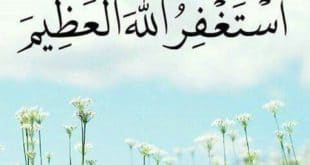 أَسْتَغْفِرُ اللهَ الْعَظِيمَ